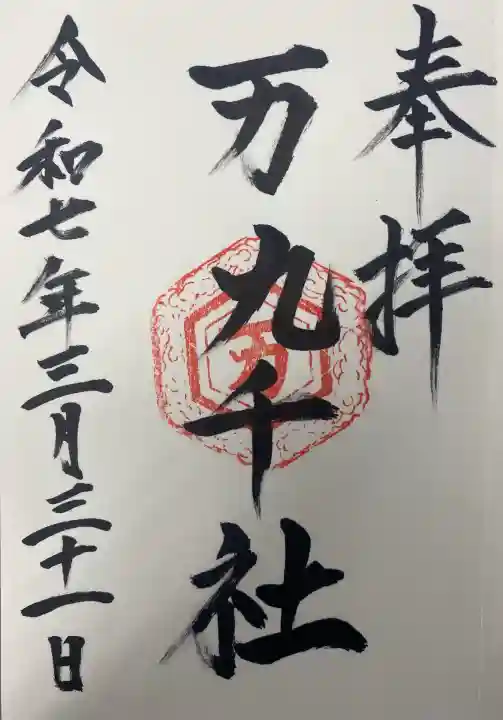 奉拝
万九千社
令和七年三月三十一日
万